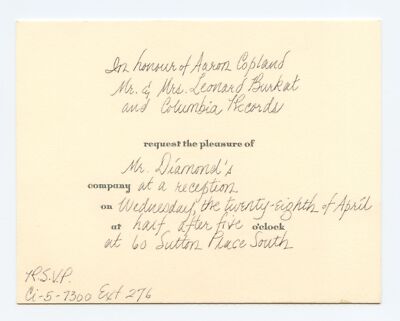 In honour of Aaron Copland
Mr. & Mrs. Leonard Burkat
and Columbia Records
request the pleasure of
Mr. Diamond's
company at a reception
on Wednesday, the twenty-eighth of April
at half after five o'clock
at 60 Sutton Place South
R.S.V.P.
Ci-5-7300 Ext 276